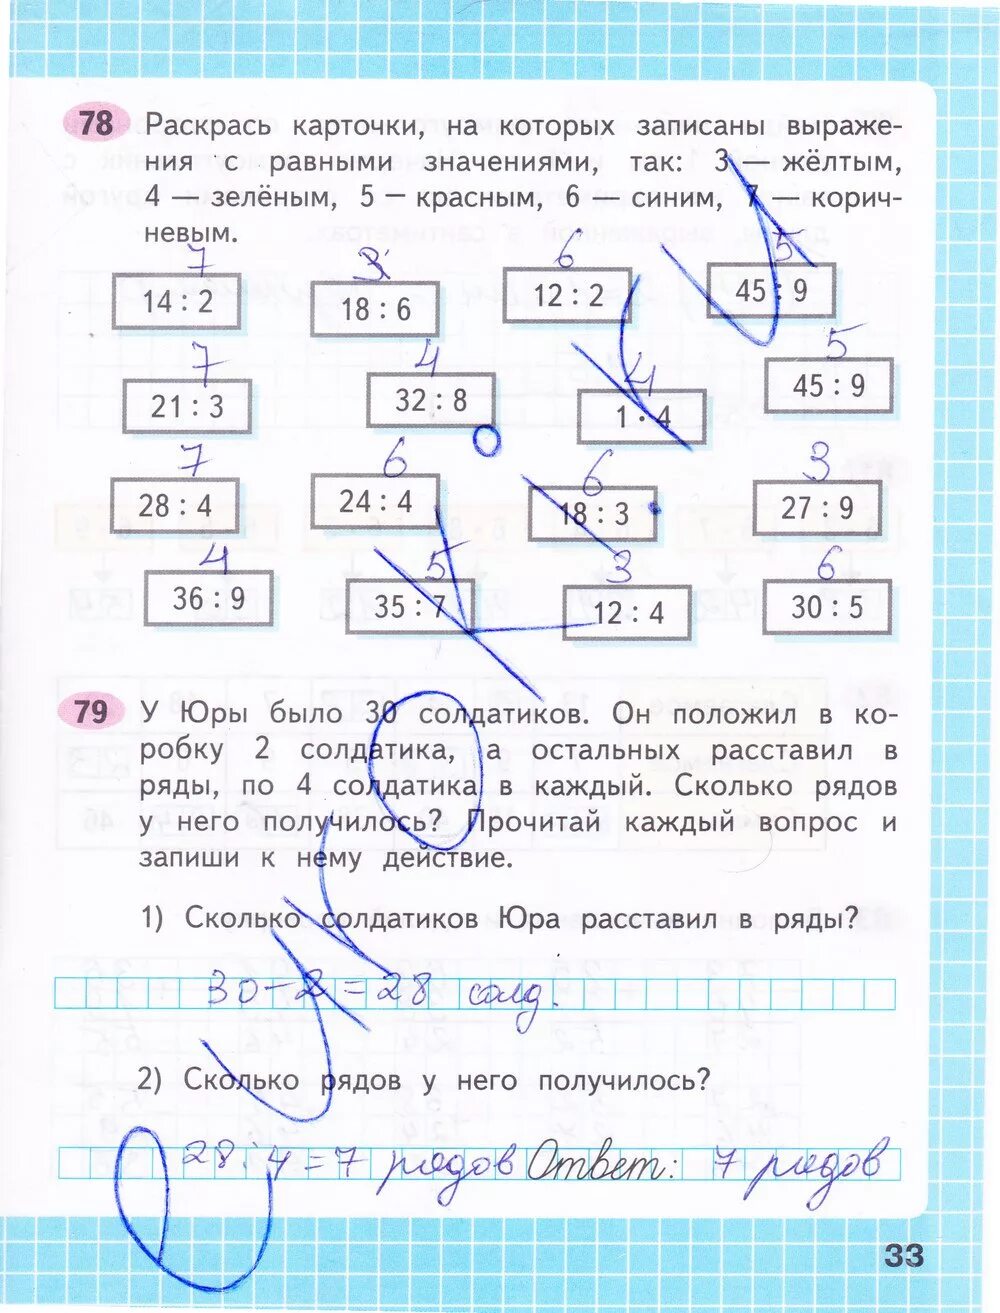 78 Раскрась карточки, на которых записаны выраже-
ния с равными значениями, так: 3 — жёлтым,
4 — зелёным, 5 — красным, 6 — синим, 7 — корич-
невым.
7 3 6 5
14 : 2 18 : 6 12 : 2 45 : 9
7 4 4 5
21 : 3 32 : 8 1 · 4 45 : 9
7 6 6 3
28 : 4 24 : 4 18 : 3 27 : 9
4 5 3 6
36 : 9 35 : 7 12 : 4 30 : 5
79 У Юры было 30 солдатиков. Он положил в ко-
робку 2 солдатика, а остальных расставил в
ряды, по 4 солдатика в каждый. Сколько рядов
у него получилось? Прочитай каждый вопрос и
запиши к нему действие.
1) Сколько солдатиков Юра расставил в ряды?
30 - 2 = 28 солд.
2) Сколько рядов у него получилось?
28 : 4 = 7 рядов Ответ: 7 рядов
33